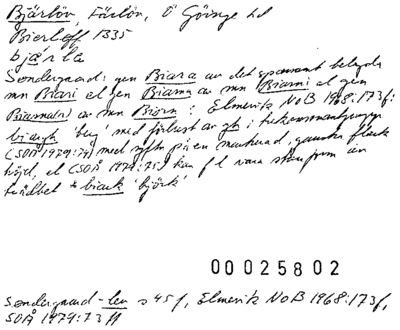 Bjärlöv, Färlöv, Ö Göinge hd
Bierloff 1335
bjä̀rla
Søndergaard: gen Biara av det sparsamt belagda
mn Biari el gen Biarna av mn Biarni el gen
av mn Biorn; Elmevik NoB 1968:173f:
biargh 'berg' med förlust av gh i trekonsonantgrupp
(SOÅ 1979:74) med syftn på en markerad, ganska flack
höjd, el (SOÅ 1979:75) kan fl vara stamform av
trädbet *biark 'björk'
00025802
Søndergaard -lev s 45 f, Elmevik NoB 1968:173f,
SOÅ 1979:73 ff